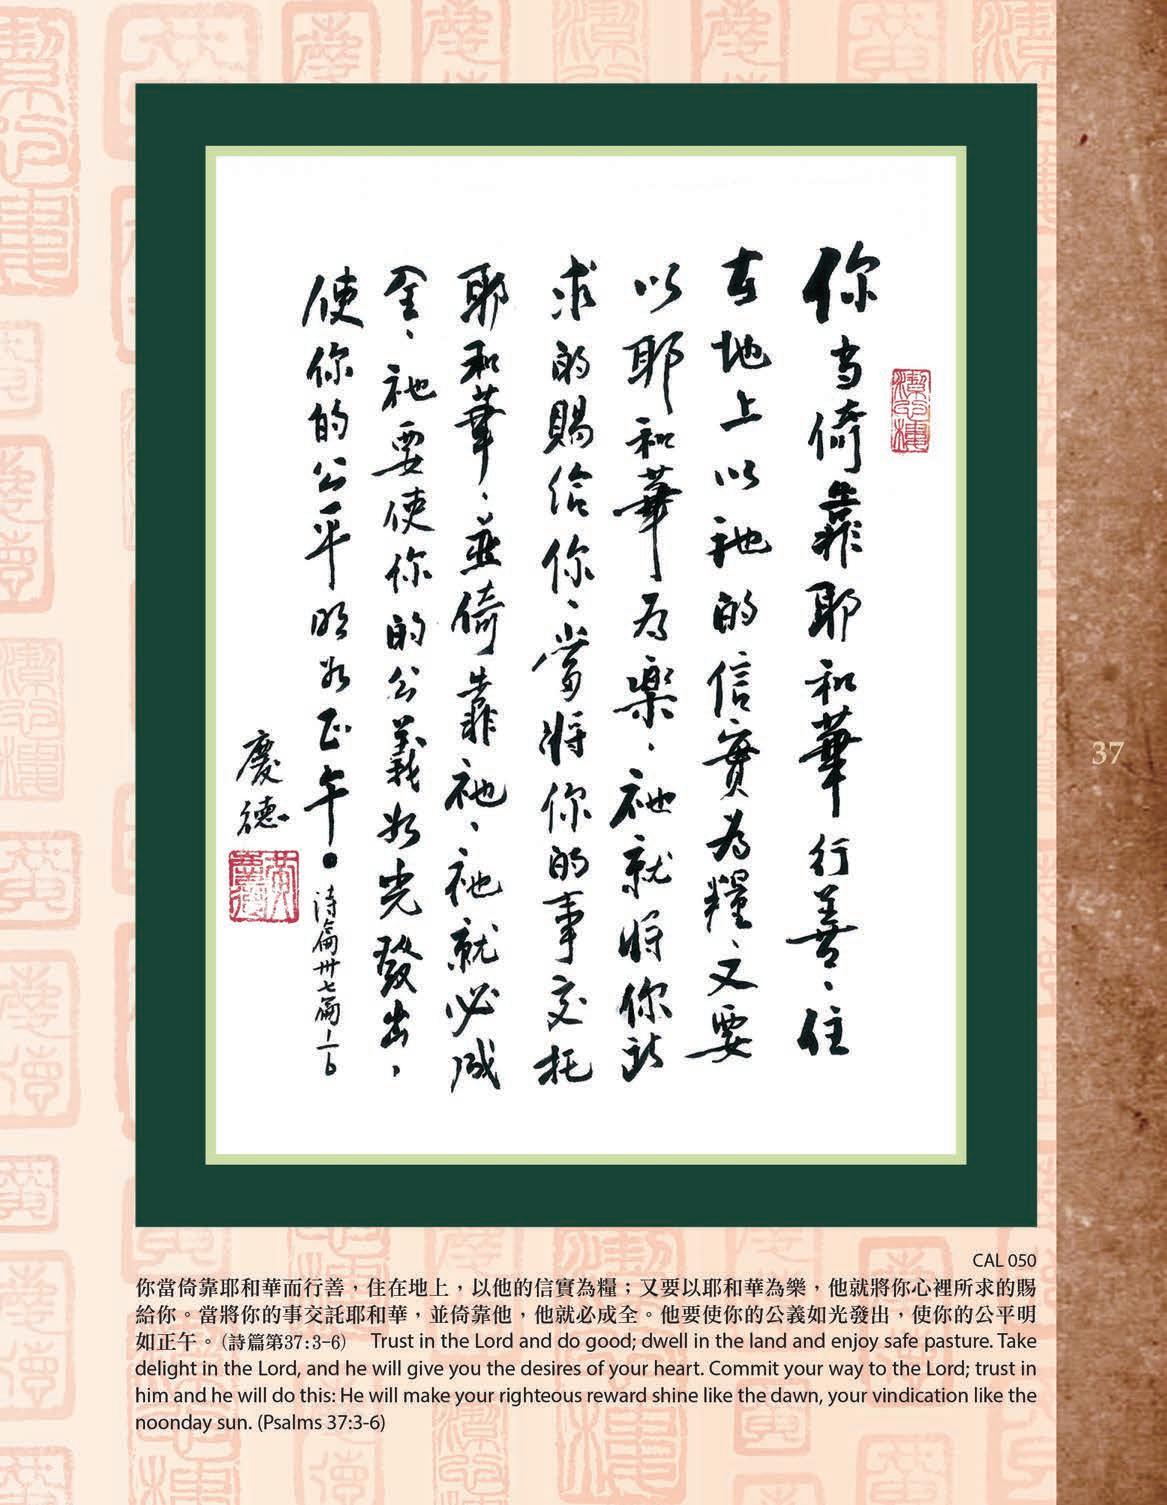 你当倚靠耶和華行善、住
在地上以祂的信實為糧、又要
以耶和華為樂、祂就將你所
求的賜給你、當將你的事交托
耶和華、並倚靠祂、祂就必成
全、祂要使你的公義如光發出，
使你的公平明如正午。詩篇卅七篇
慶德
黃慶德
37
CAL 050
你當倚靠耶和華而行善，住在地上，以他的信實為糧；又要以耶和華為樂，他就將你心裡所求的賜
給你。當將你的事交託耶和華，並倚靠他，他就必成全。他要使你的公義如光發出，使你的公平明
如正午。(詩篇第37:3-6) Trust in the Lord and do good; dwell in the land and enjoy safe pasture. Take
delight in the Lord, and he will give you the desires of your heart. Commit your way to the Lord; trust in
him and he will do this: He will make your righteous reward shine like the dawn, your vindication like the
noonday sun. (Psalms 37:3-6)